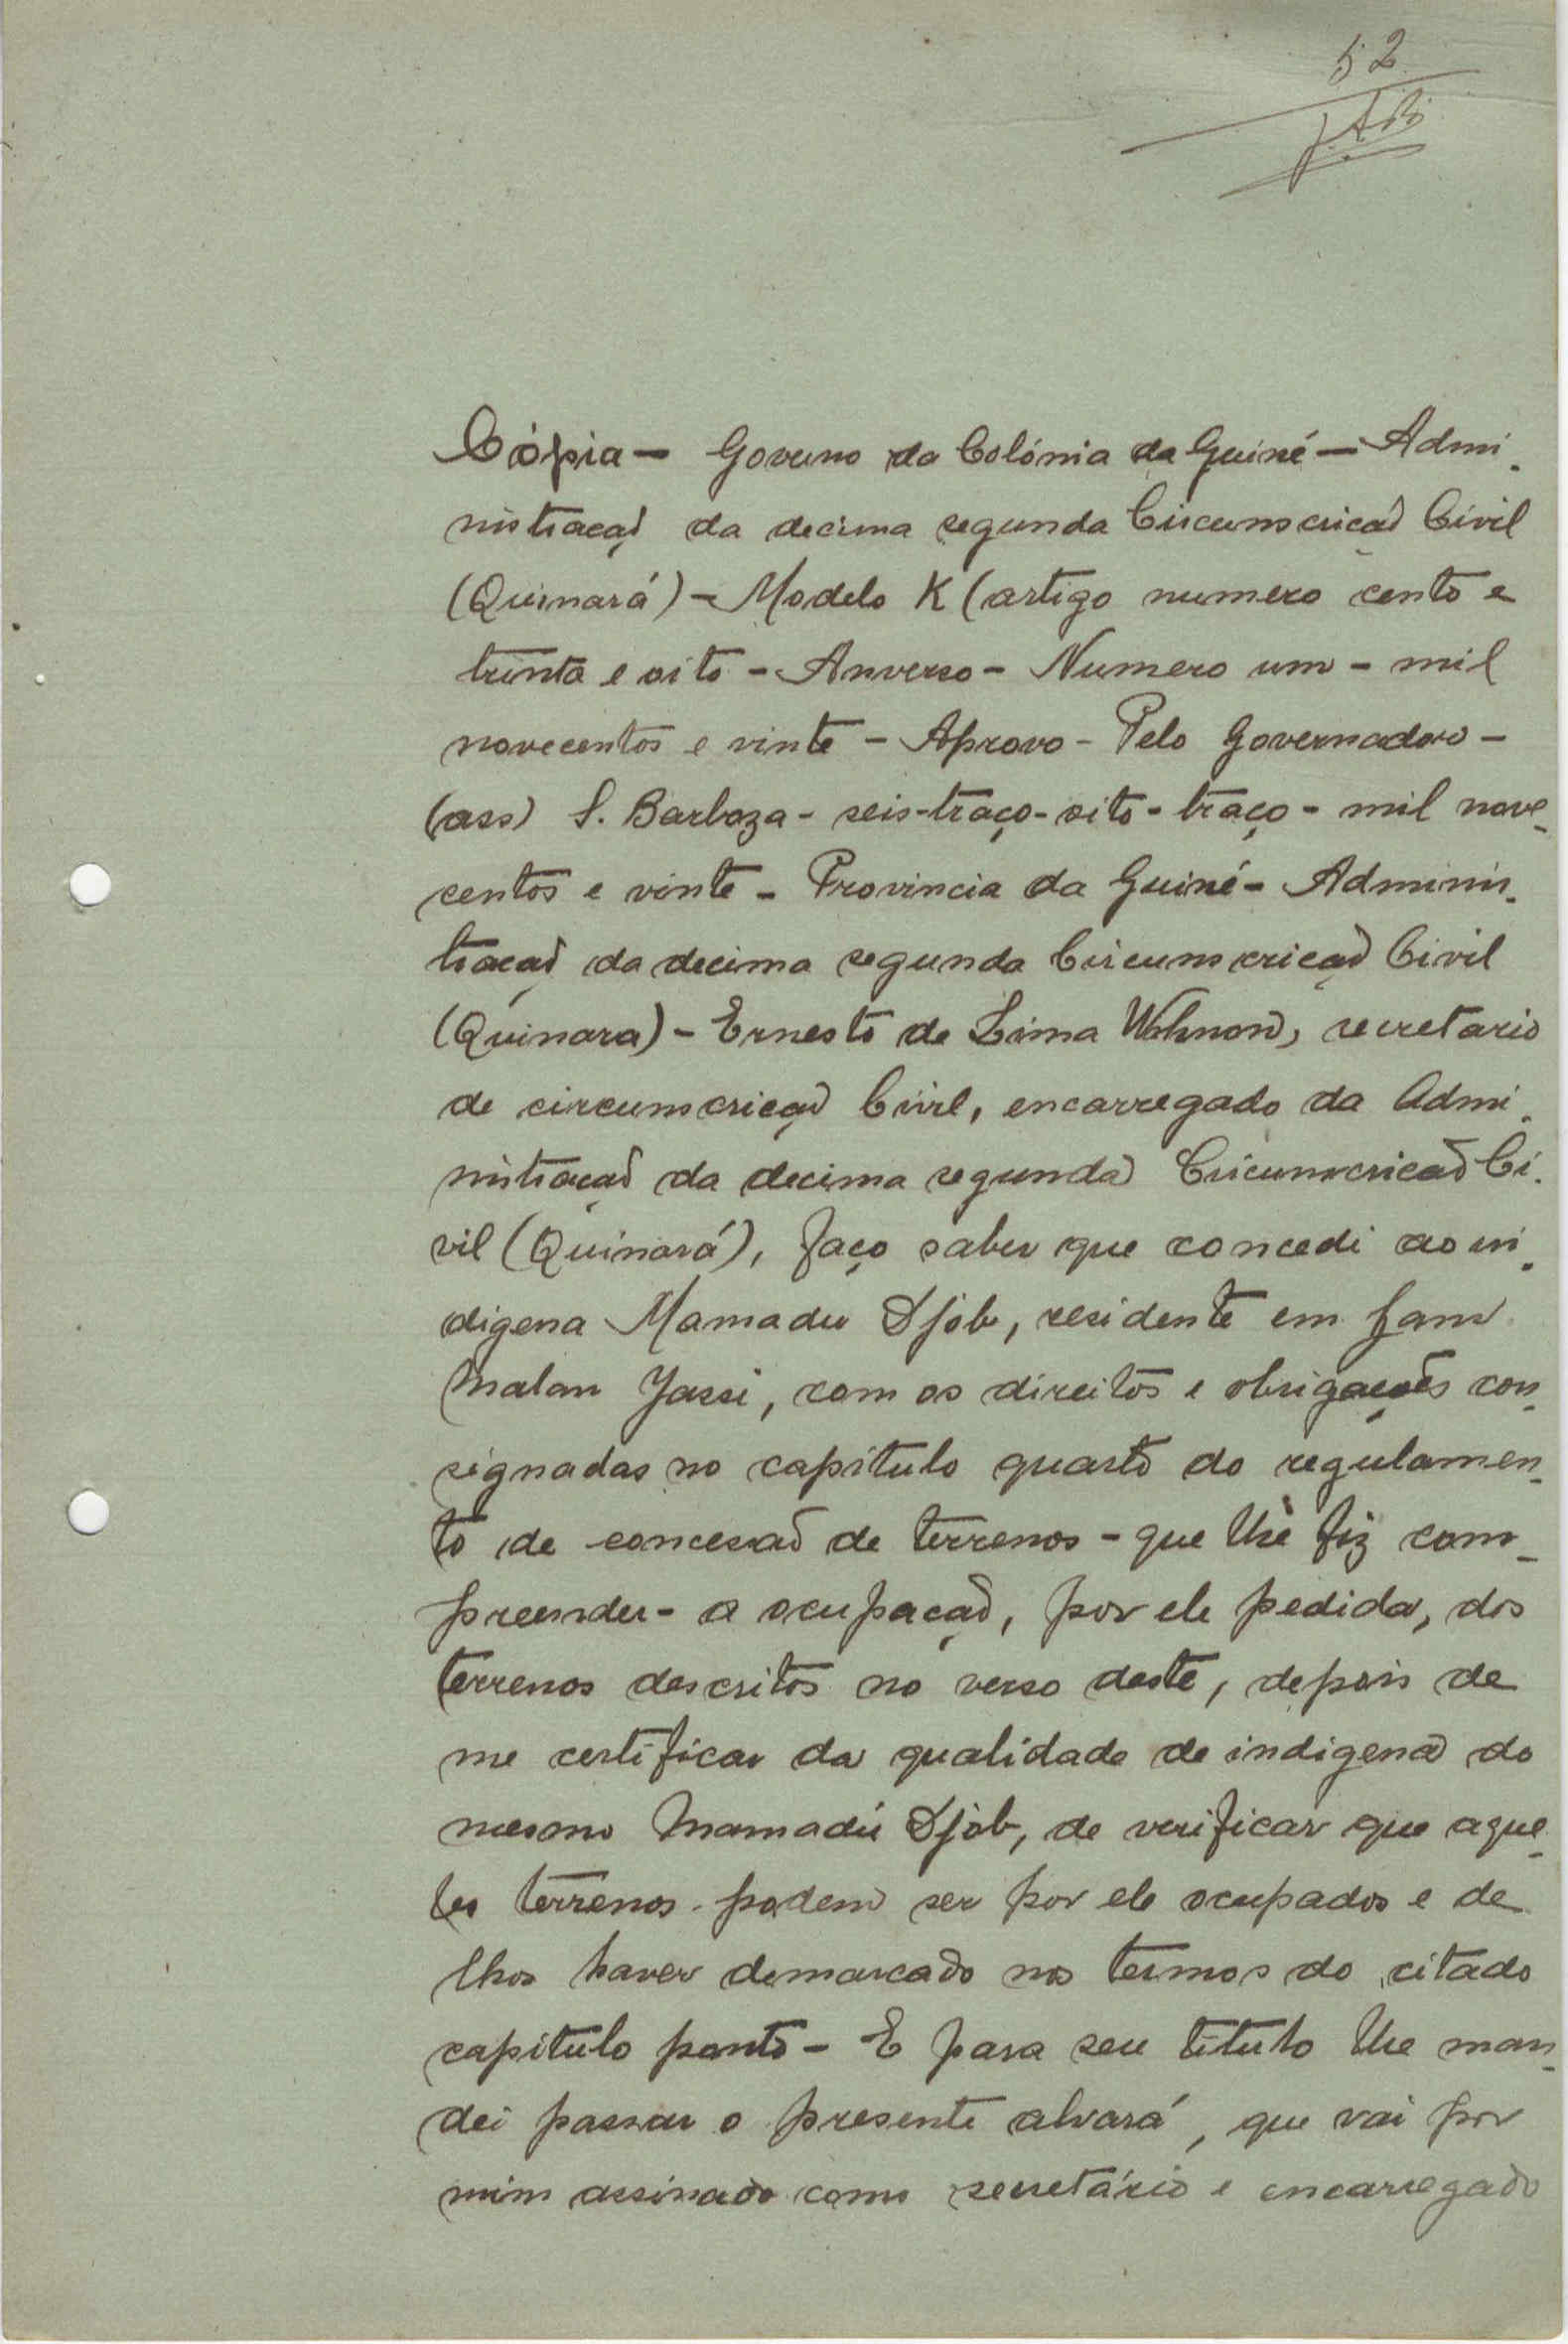 52
Cópia - Governo da Colónia da Guiné - Admi-
nistração da decima segunda Circumscrição Civil
(Quinará) - Modelo K (artigo numero cento e
trinta e oito - Anverso - Numero um - mil
novecentos e vinte - Aprovo - Pelo Governador -
(ass) S. Barboza - seis-traço-oito-traço - mil nove-
centos e vinte - Provincia da Guiné - Adminis-
tração da decima segunda Circumscrição Civil
(Quinara) - Ernesto de Lima Wahnon, secretario
de circumscrição Civil, encarregado da Admi-
nistração da decima segunda Circumscrição Ci-
vil (Quinará), faço saber que concedi ao in-
digena Mamadu Djob, residente em Jam
Malan Jassi, com os direitos e obrigações con-
signadas no capítulo quarto do regulamen-
to de concessão de terrenos - que lhe fiz com-
preender - a ocupação, por ele pedida, dos
terrenos descritos no verso deste, depois de
me certificar da qualidade de indigena do
mesmo Mamadú Djob, de verificar que aque-
les terrenos podem ser por ele ocupados e de
lhos haver demarcado nos termos do citado
capítulo ponto - E para seu título lhe man-
dei passar o presente alvará, que vai por
mim assinado como secretário e encarregado